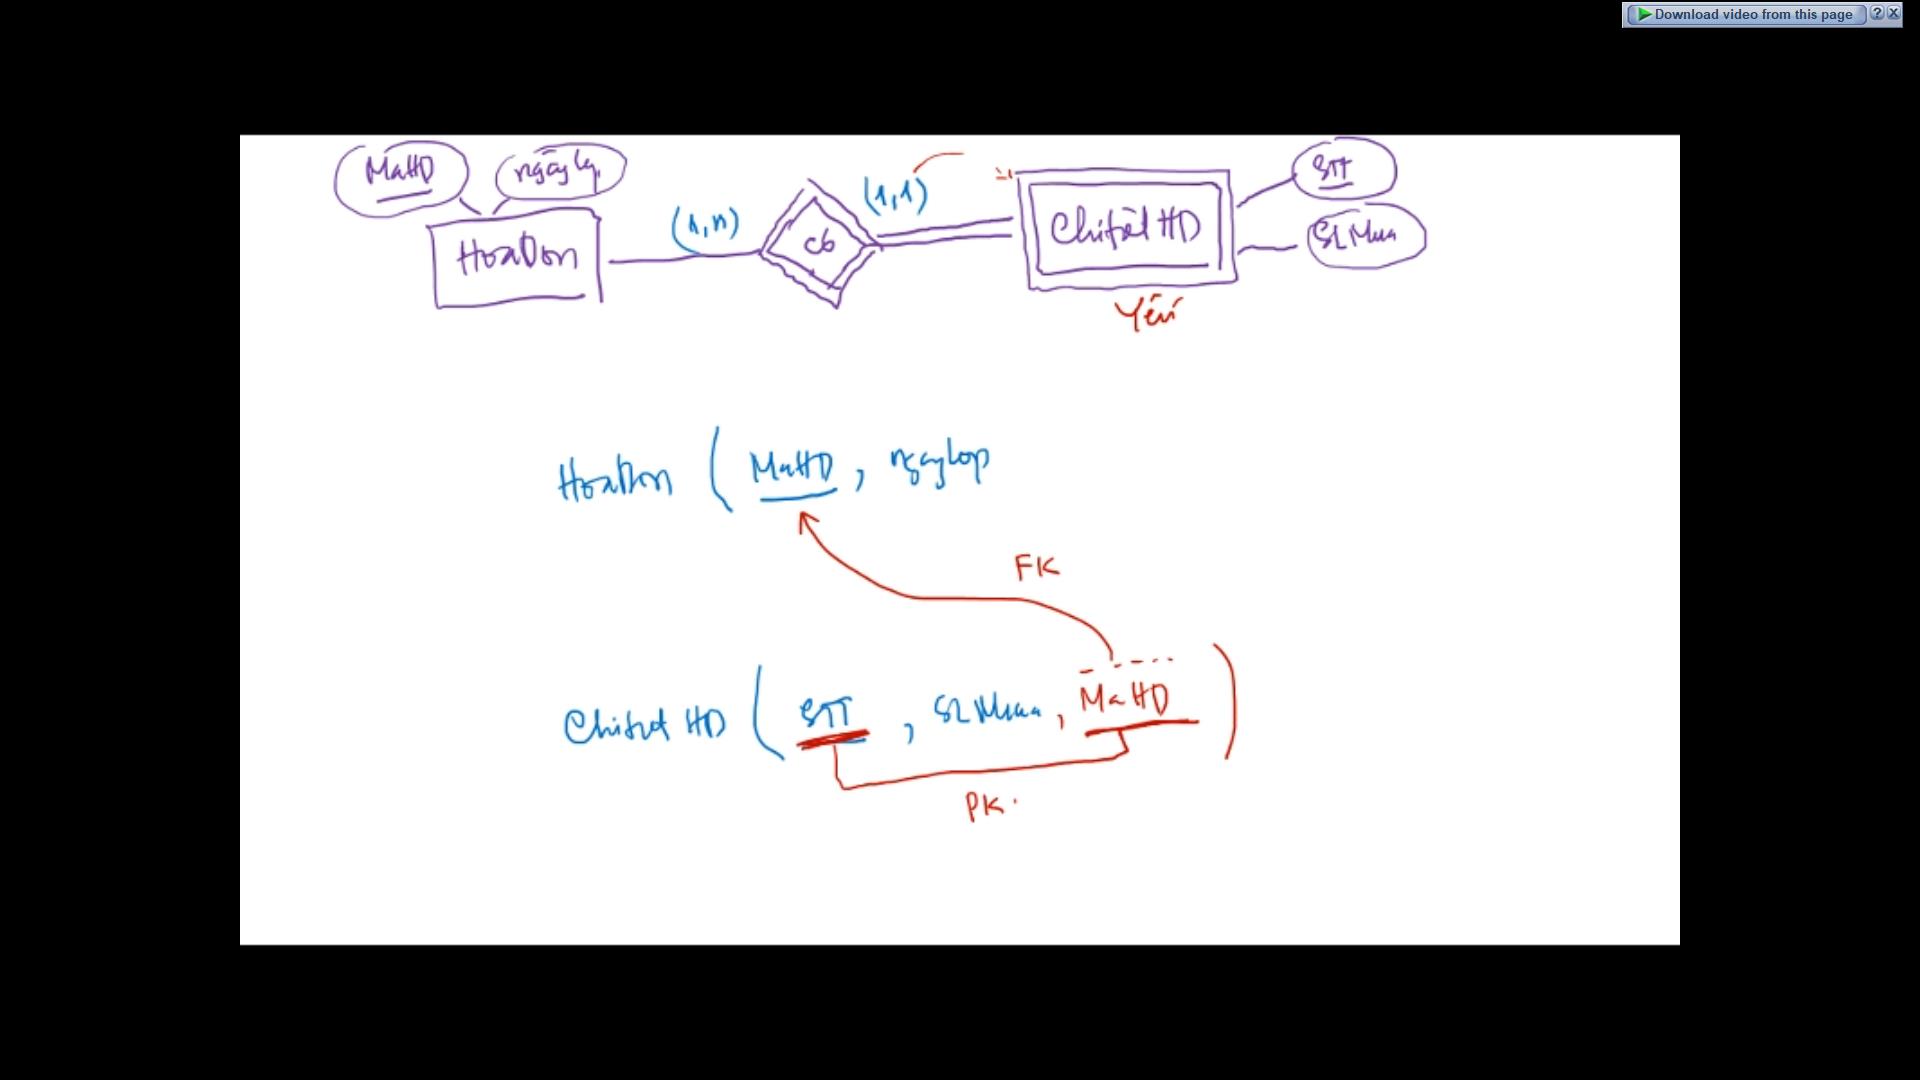 Download video from this page ? X
MaHD ngaylap STT
(1,n) (1,1)
HoaDon có ChitiếtHD SLMua
Yếu
HoaDon ( MaHD , ngaylap
FK
Chitiet HD ( STT , SLMua , MaHD )
PK.